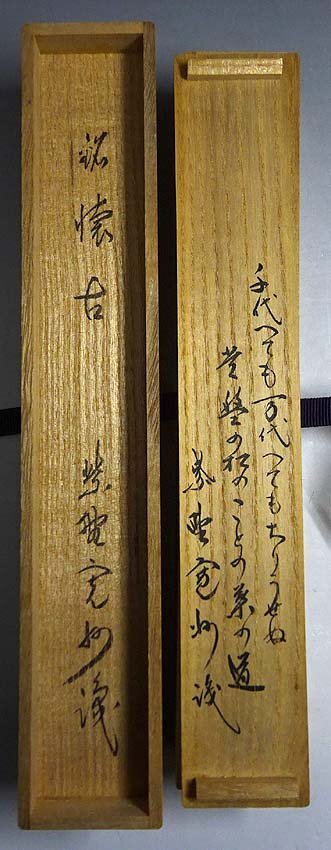 千代へても万代へてもちりうせぬ
常盤の松のことの葉の道
紫野寛州識
銘懐古
紫野寛州識